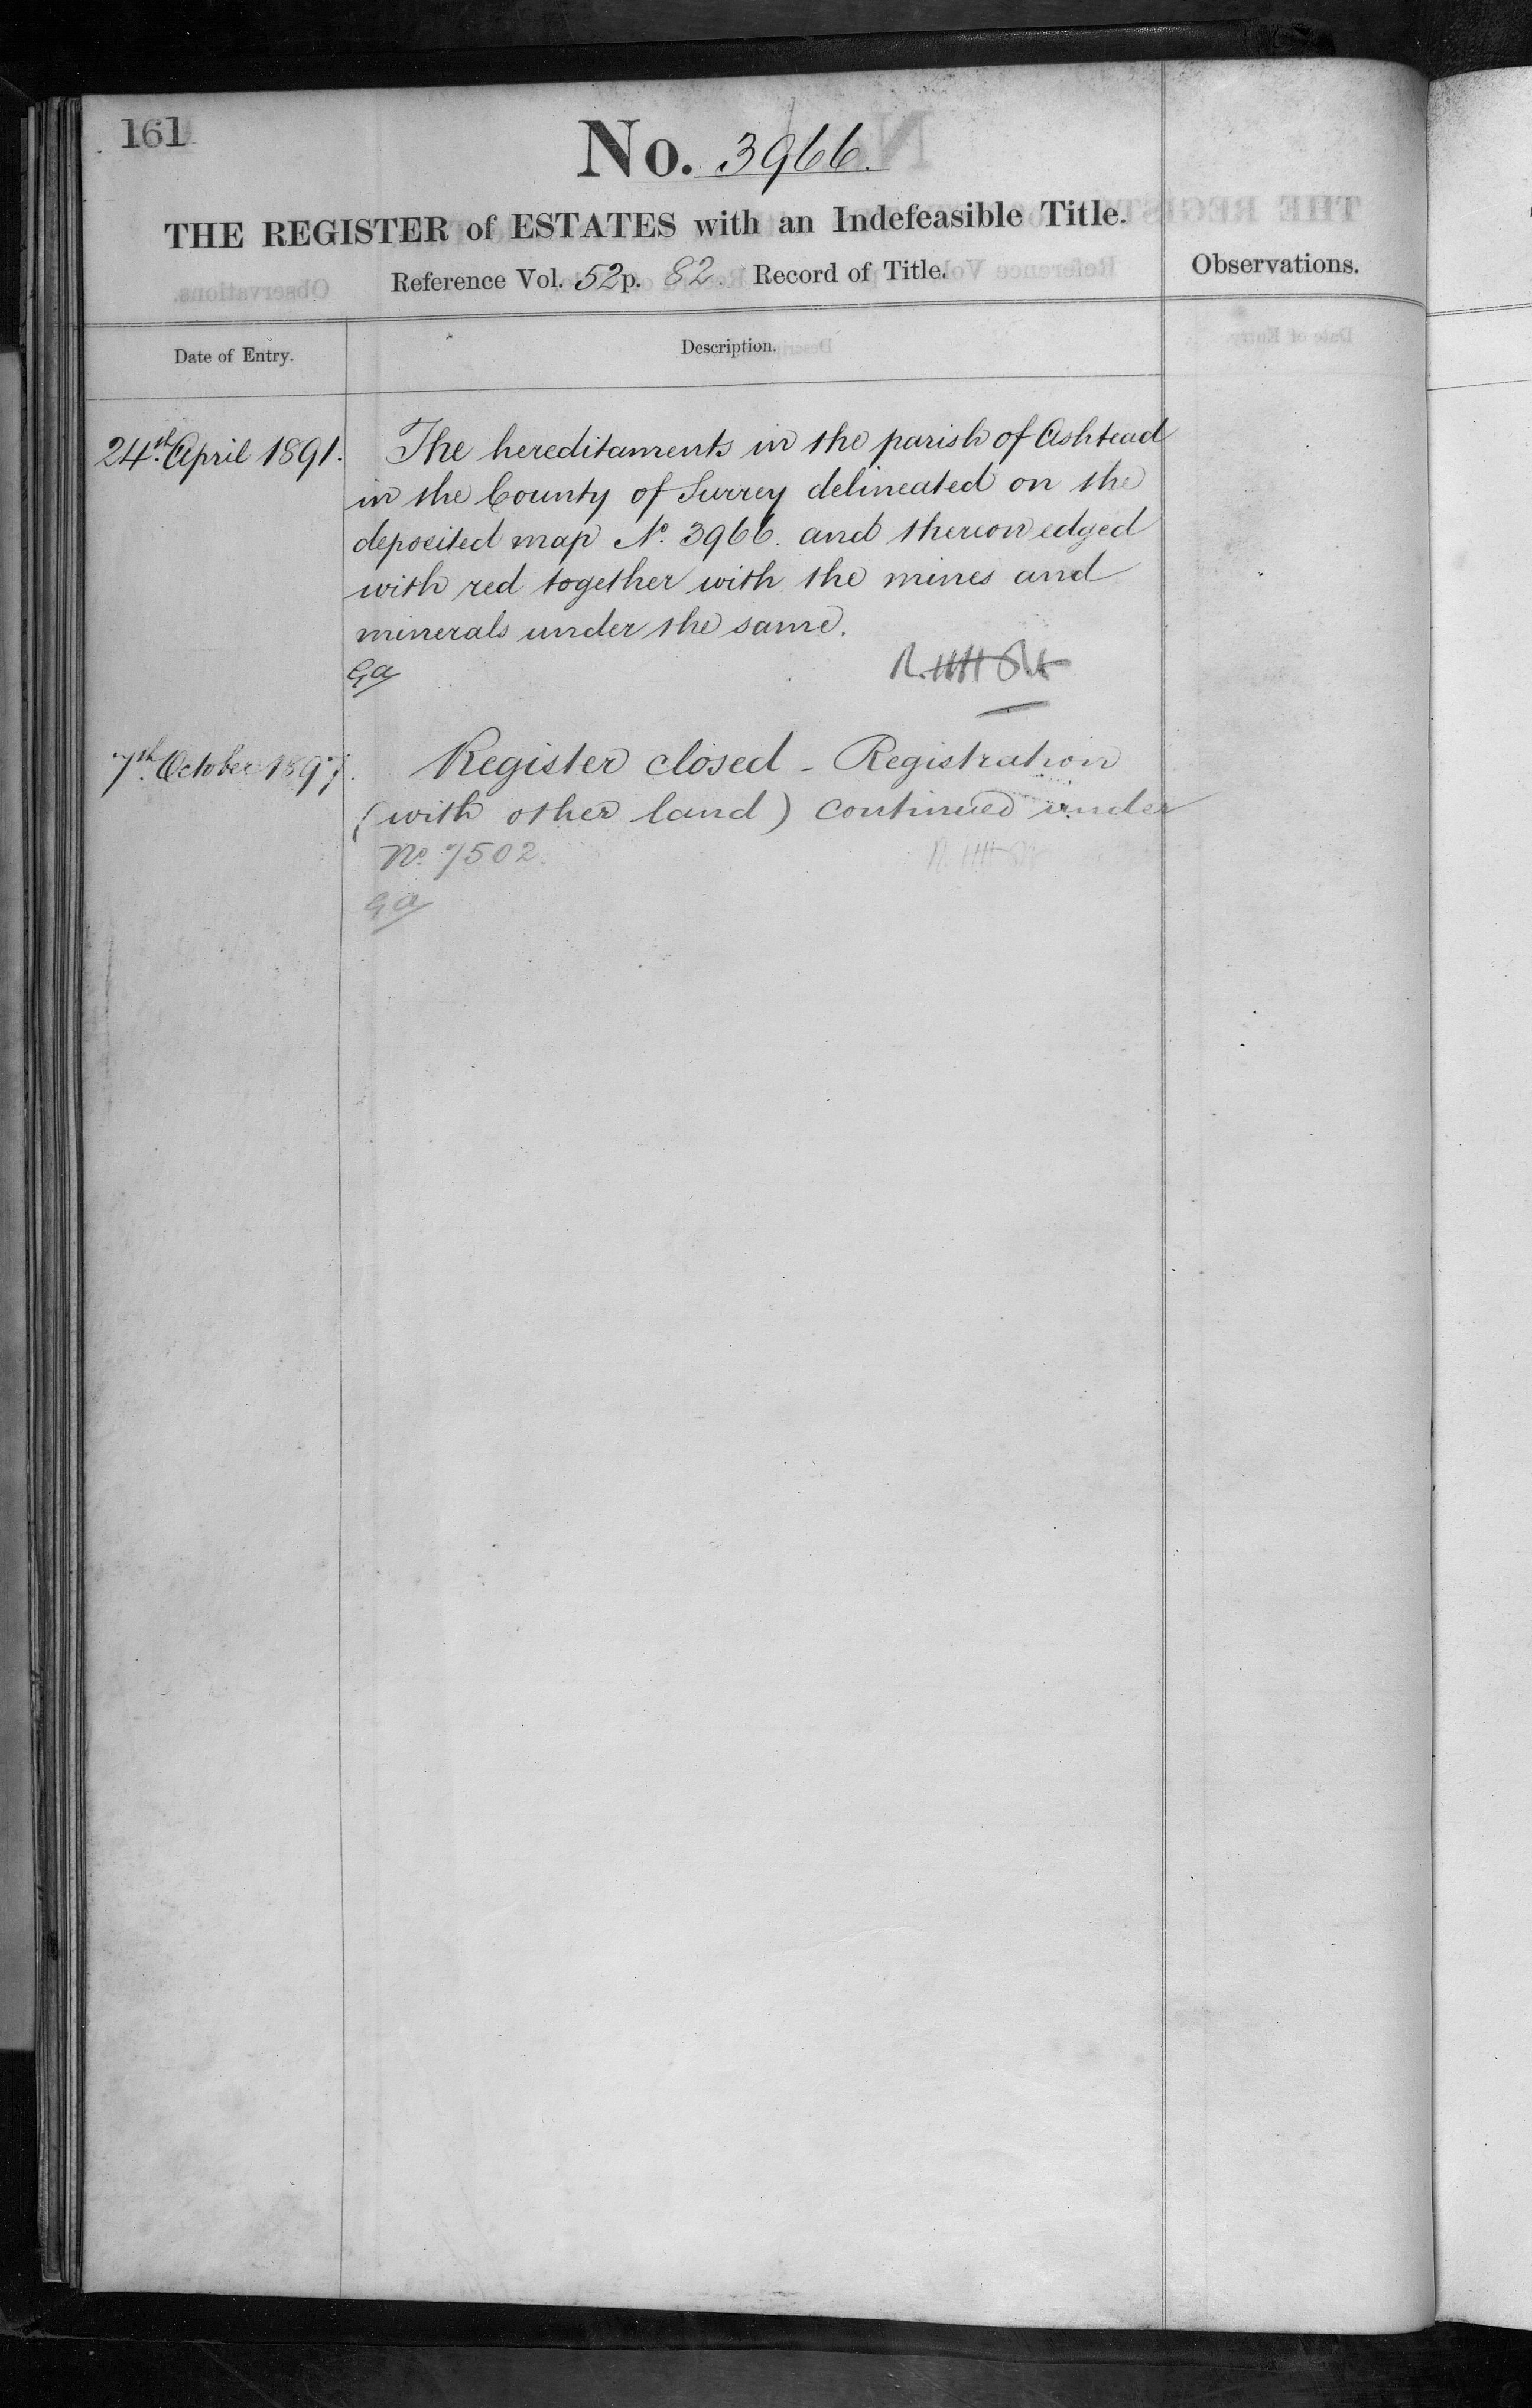 161
No. 3966.
THE REGISTER of ESTATES with an Indefeasible Title.
Reference Vol. 52 p. 82. Record of Title.
Observations.
Date of Entry.
Description.
24th. April 1891.
The hereditaments in the parish of Ashtead
in the County of Surrey delineated on the
deposited map No. 3966. and thereon edged
with red together with the mines and
minerals under the same.
Ga
7th. October 1897.
Register closed - Registration
(with other land) continued under
No. 7502.
Ga